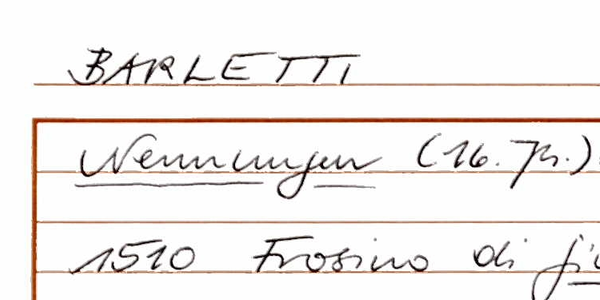 BARLETTI
Nennungen (16. Jh.)
1510 Frosino di